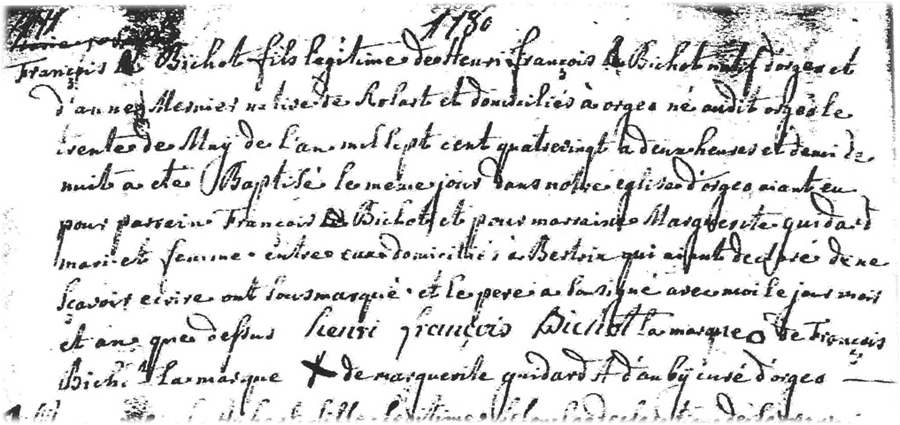 1780
François Bichot fils legitime de Henri françois Bichot natif d'orgeo et
d'anne Mernier native de Rolart et domiciliés à orgeo né audit orgeo le
trente de May de l'an mil sept cent quatrevingt a deux heures et demi de
nuit a ete Baptisé le meme jour dans notre eglise d'orgeo aiant eu
pour parrein François Bichot et pour marraine Marguerite guidard
mari et femme entre eux domiciliés à Bertrix qui aiant declaré de ne
sçavoir ecrire ont sousmarqué et le pere a sousigné avec moi le jour mois
et an que dessus henri françois Bichot la marque o de François
Bichot la marque X de marguerite guidard d'auby curé d'orgeo
fille legitime